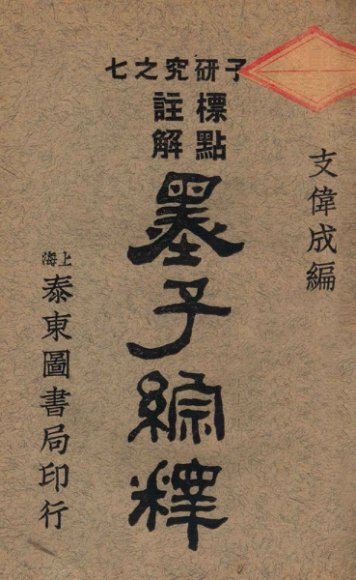 子研究之七
標點
註解
墨子綜釋
支偉成編
上海
泰東圖書局印行